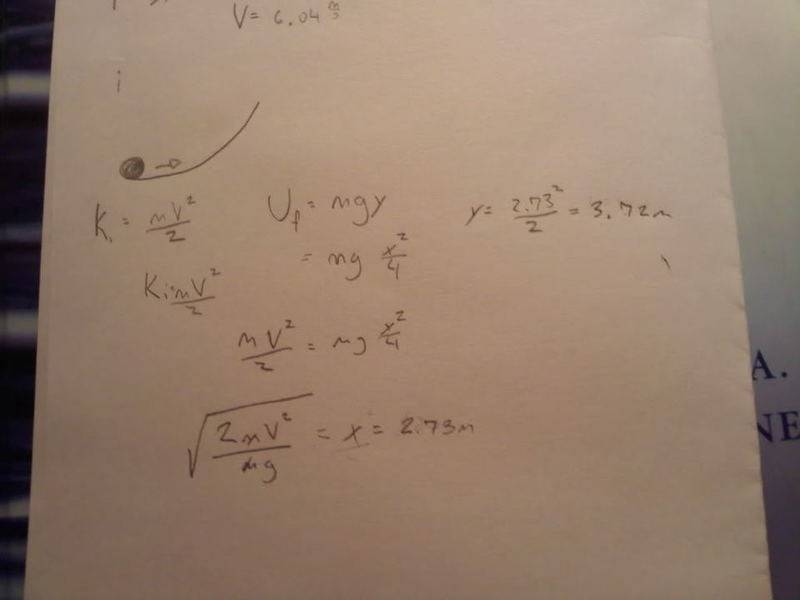 V = 6.04 m/s
i
Ki = mV²/2
Uf = mgy
= mg x²/4
y = 2.73²/2 = 3.72m
Ki = mV²/2
mV²/2 = mg x²/4
√(2mV²/mg) = x = 2.73m
A.
NE